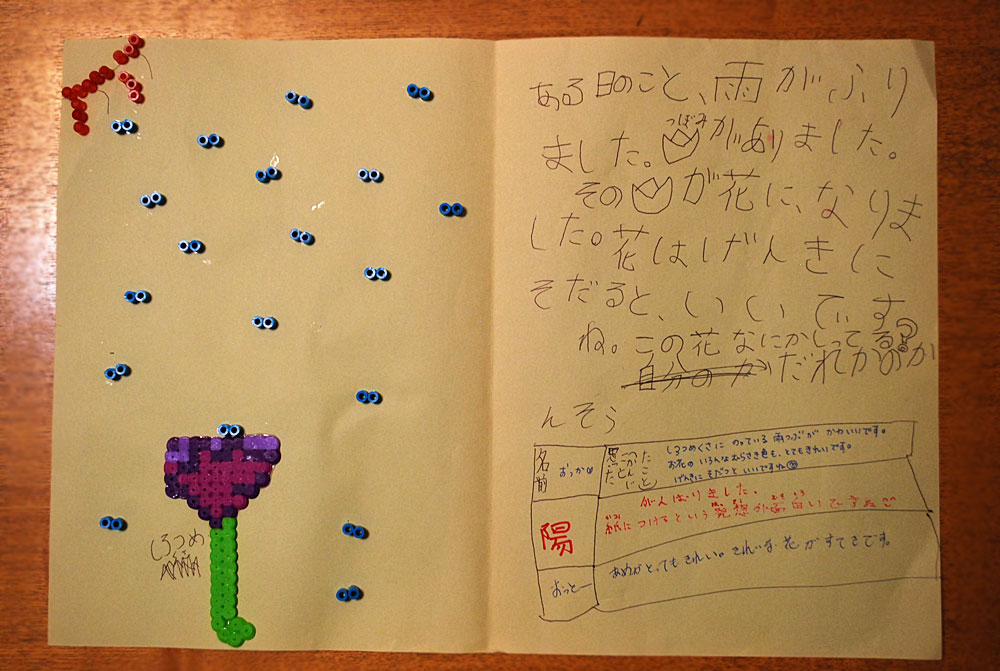 しろつめ
ある日のこと、雨がふり
つぼみ
ました。がありました。
そのが花に、なりま
した。花はげんきに
そだると、いいです
ね。この花なにかしってる?
自分のか だれかのか
んそう
名前
おっかぁ
思ったことだとじ
しろつめくさに のっている 雨つぶが かわいいです。
お花の いろんなむらさき色も、とてもきれいです。
げんきに そだつと いいですね
陽
がんばりました。
紙につけるという発想が面白いですね
おっとー
あめがとってもきれい。きれいな花がすてきです。